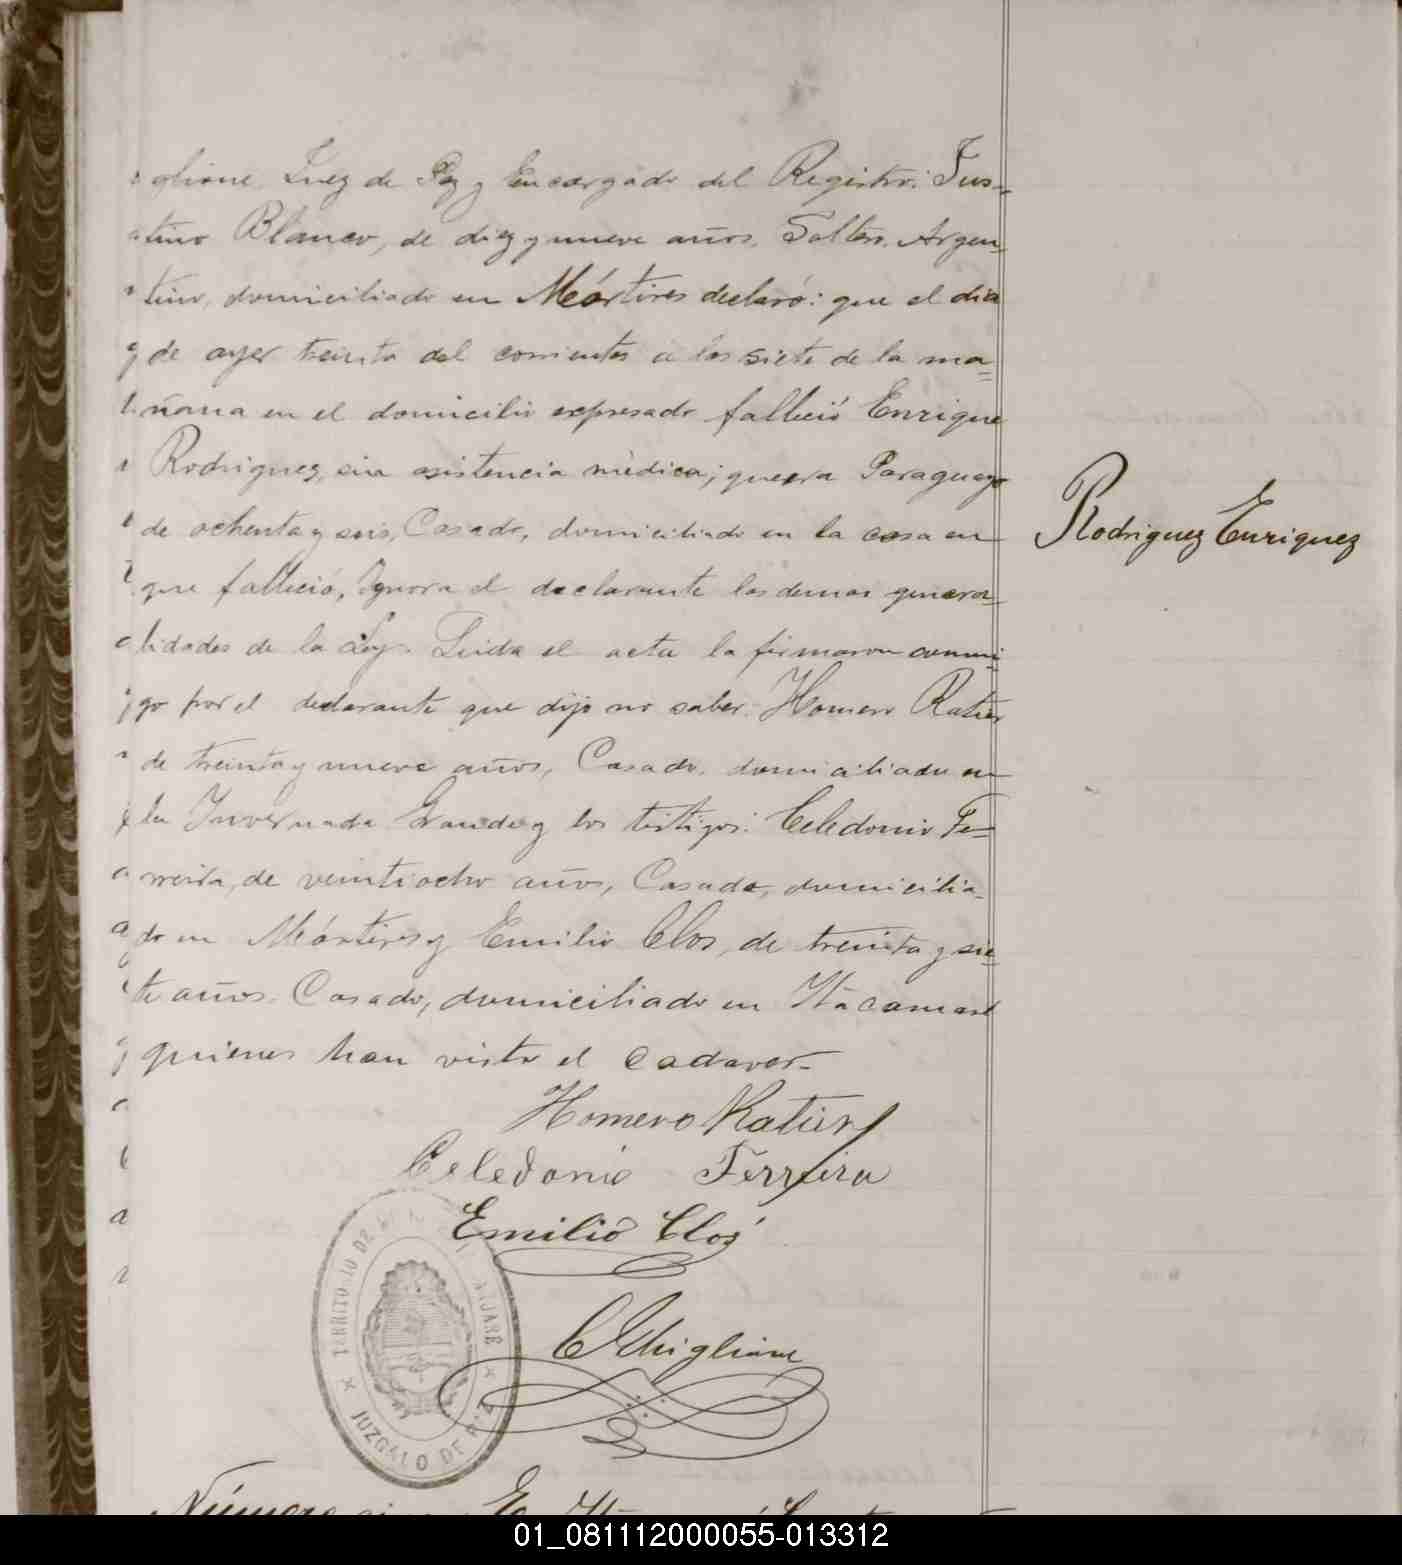 glione Juez de Paz y Encargado del Registro: Jus-
tino Blanco, de diez y nueve años, Soltero, Argen-
tino, domiciliado en Mártires declaró: que el dia
de ayer treinta del corriente a las siete de la ma=
ñana en el domicilio expresado falleció Enrique
Rodriguez, sin asistencia mèdica; que era Paraguayo
de ochenta y seis, Casado, domiciliado en la casa en
que falleció, Ignora el declarante las demas genera=
lidades de la Ley. Leida el acta la firmaron conmi=
go por el declarante que dijo no saber: Homero Ratier
de treinta y nueve años, Casado, domiciliado en
la Invernada Grande y los testigos: Celedonio Fe=
rreira, de veintiocho años, Casado, domicilia=
do en Mártires y Emilio Clos, de treinta y sie=
te años. Casado, domiciliado en Itacaruaré
quienes han visto el cadaver-
Rodriguez Enriquez
Homero Ratier
Celedonio Ferreira
Emilio Clos
C Ghiglione
TERRITORIO DE
JUZGADO DE PAZ
Número
01_081112000055-013312